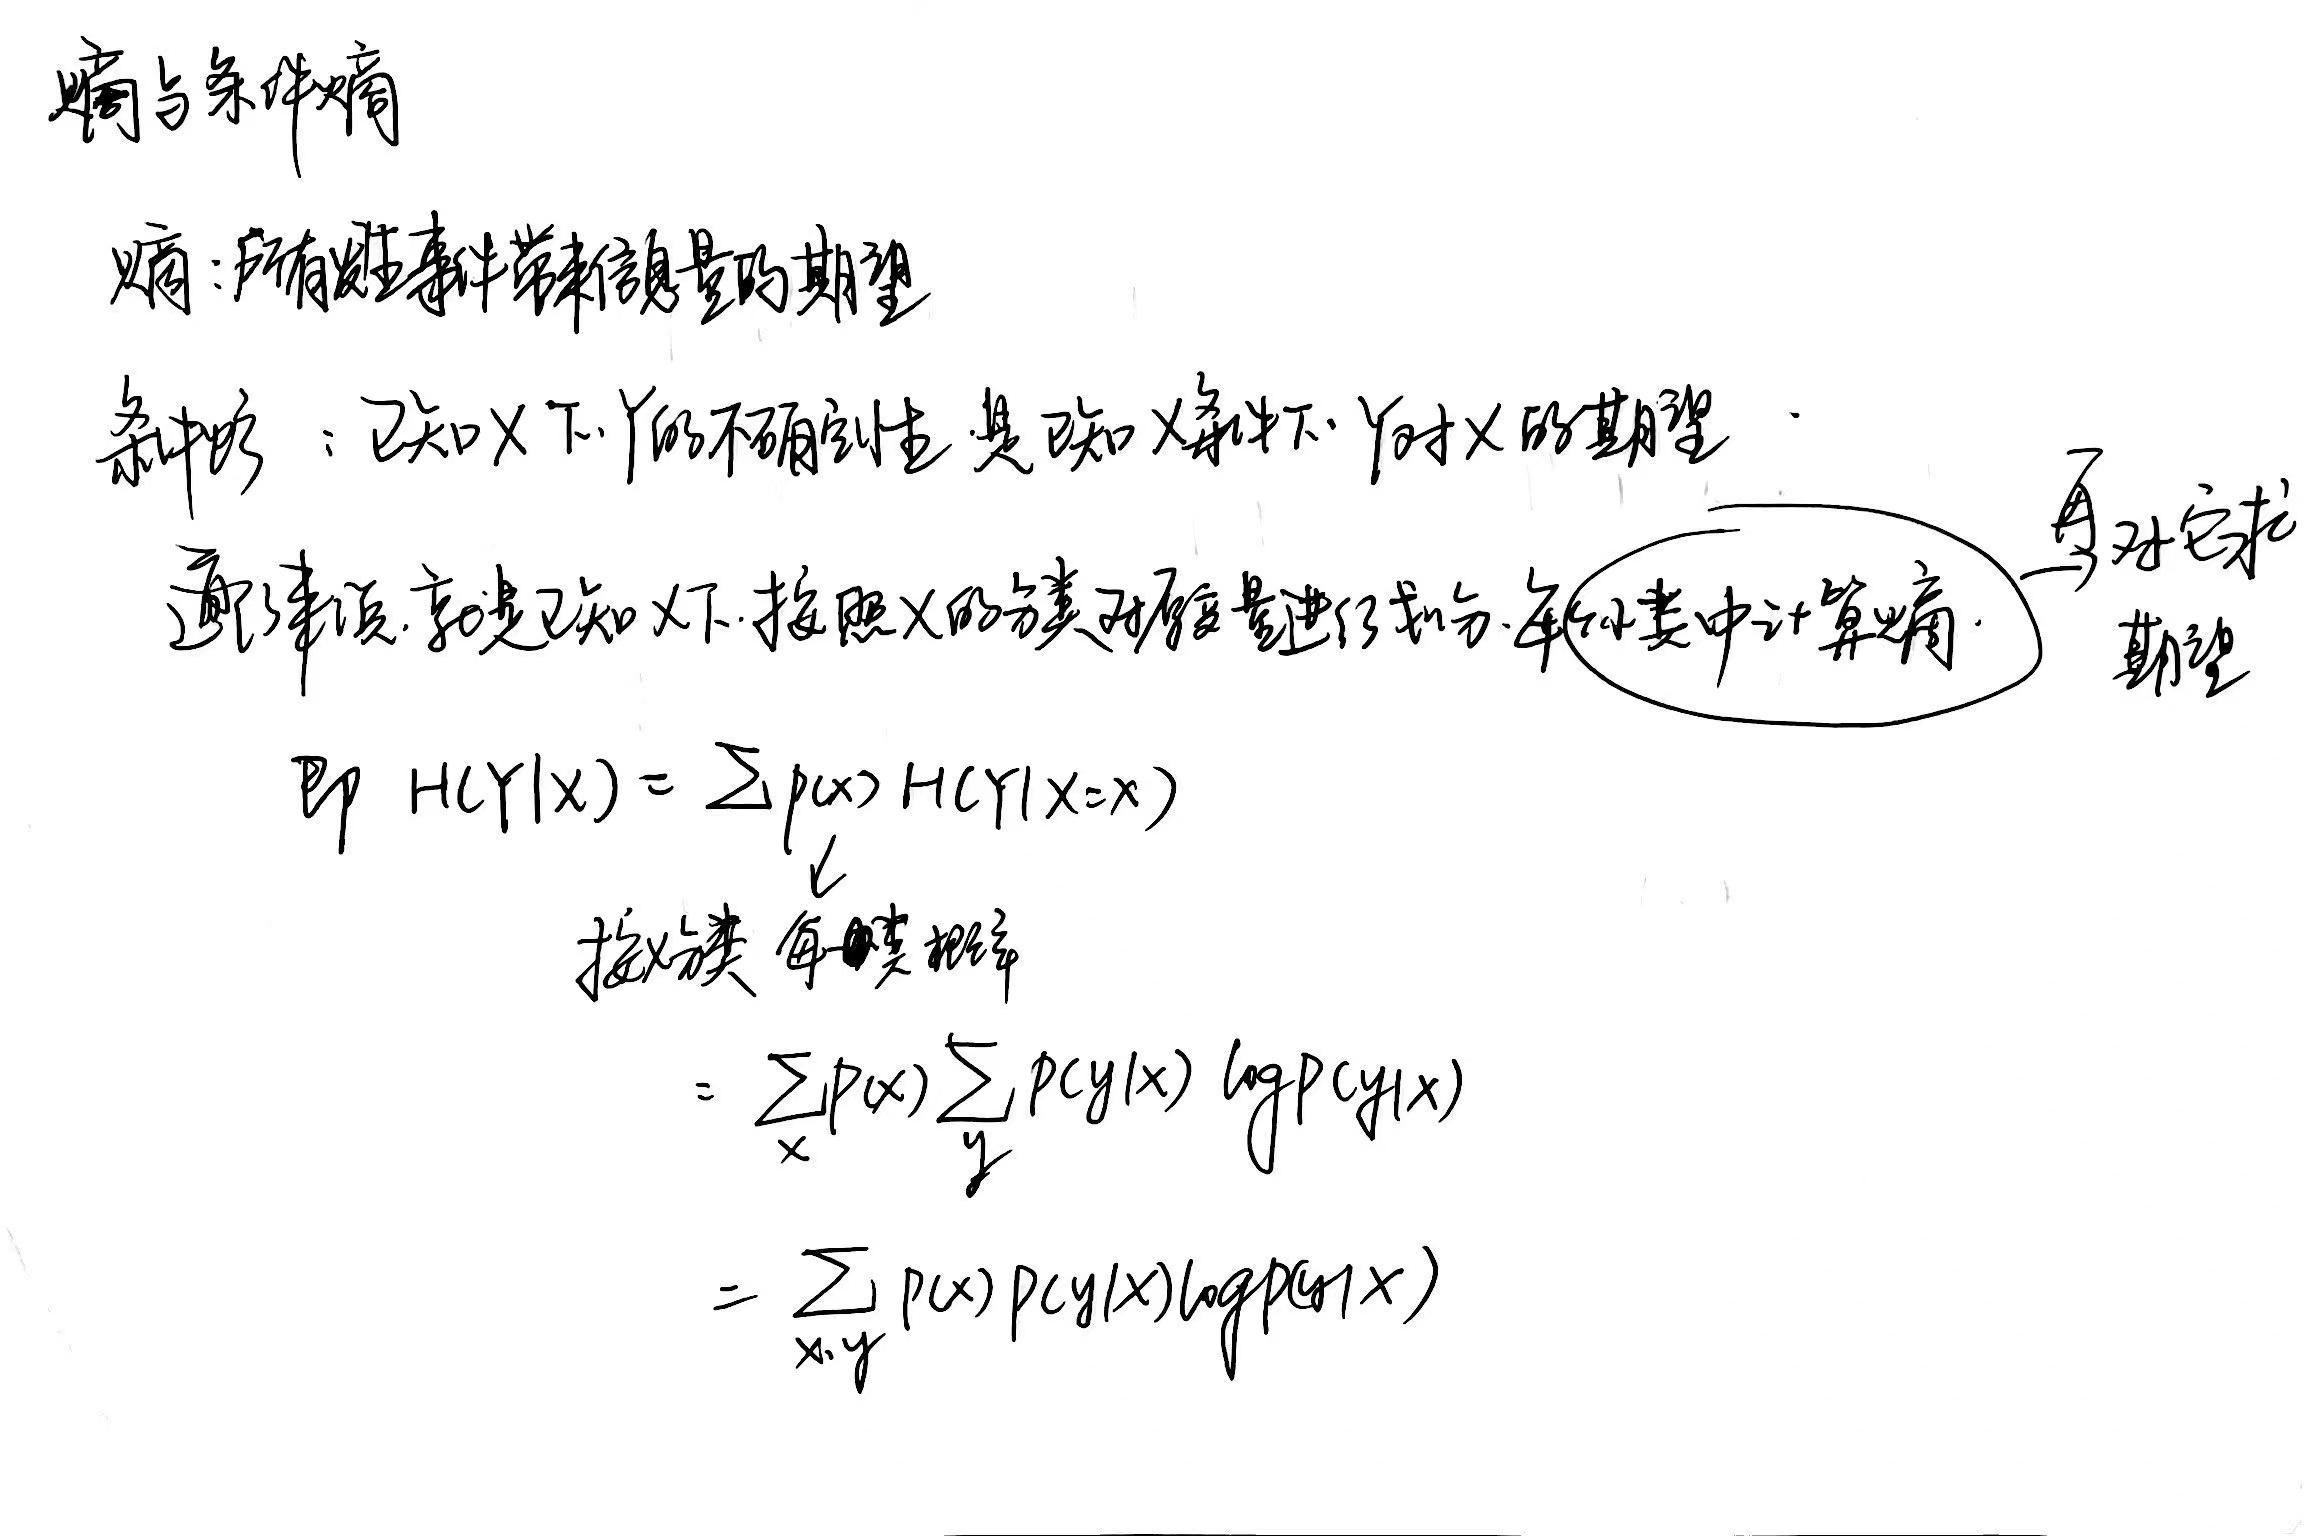 熵与条件熵
熵：所有发生事件带来信息量的期望
条件熵：已知X下.Y的不确定性.是已知X条件下.Y对X的期望.
通俗来说.就是已知X下.按照X的分类对原变量进行划分.每个小类中计算熵.
再对它求
期望
即 H(Y|X) = ∑p(x) H(Y|X=x)
↓
按x分类 每一类概率
= ∑_x p(x) ∑_y P(y|x) log P(y|x)
= ∑_{x,y} p(x) p(y|x) log p(y|x)